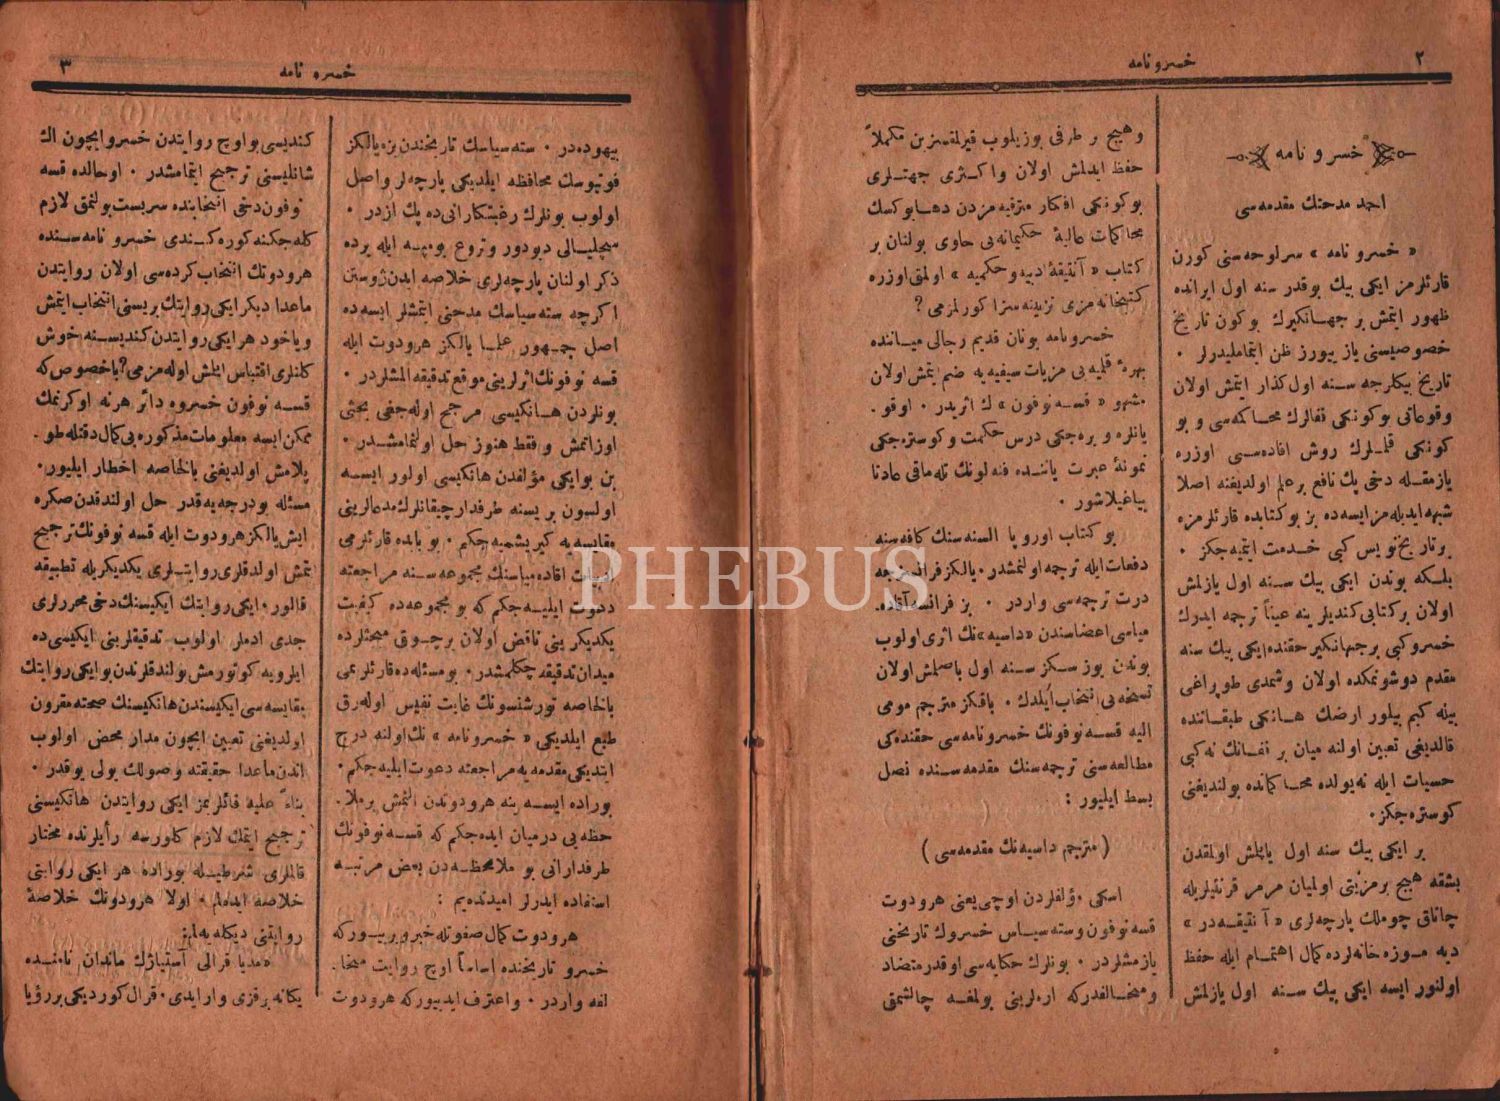 ٢
خسرو نامه
خسرو نامه
احمد مدحتك مقدمه‌سی
« خسرو نامه » سرلوحه‌سنی كورن
قارئلرمز ایكی بیك بو قدر سنه اول ایرانده
ظهور ایتمش بر جهانكیرك بوكون تاریخ
خصوصیسنی یازییورز ظن ایتماملیدرلر ۰
تاریخ بیكلرجه سنه اول گذار ایتمش اولان
وقوعاتی بوكونكی قفالرك محاكمه‌سی و بو
كونكی قلملرك روش افاده‌سی اوزره
یازمقله دخی پك نافع بر علم اولدیغنه اصلا
شبهه ایدیله‌مز ایسه‌ده بز بو كتابده قارئلرمزه
بر تاریخ نویس كبی خدمت ایتمیه‌جكز ۰
بلكه بوندن ایكی بیك سنه اول یازلمش
اولان بر كتابی كندیلرینه عیناً ترجمه ایدرك
خسرو كبی بر جهانكیر حقنده ایكی بیك سنه
مقدم دوشونمكده اولان و شمدی طوپراغی
بیله كیم بیلور ارضك هانكی طبقاتنده
قالدیغی تعیین اولنه‌میان بر قفانك نه كبی
حسیات ایله نه یولده محاكمانده بولندیغنی
كوستره‌جكز ۰
بر ایكی بیك سنه اول یاپلمش اولمقدن
بشقه هیچ بر مزیتی اولمیان مرمر قرنتیلریله
چاناق چوملك پارچه‌لری « آنتیقه‌در »
دیه موزه‌خانه‌لرده كمال اهتمام ایله حفظ
اولنور ایسه ایكی بیك سنه اول یازلمش
وهیچ بر طرفی بوزیلوب قیرلقسزین مكملاً
حفظ ایدلمش اولان واكثری جهتلری
بوكونكی افكار مترقیه‌مزدن دها یوكسك
محاكمات عالیهٔ حكیمانه‌یی حاوی بولنان بر
كتاب « آنتیقهٔ ادبیه وحكمیه » اولمق اوزره
كتبخانه‌مزی تزیینه سزا كورلمزمی ؟
خسرونامه یونان قدیم رجالی میاننده
بهرهٔ قلمیه‌یی مزیات سیفیه‌یه ضم ایتمش اولان
مشهور « قسه نوفون » ك اثریدر ۰ اوقو ۰
یانلره ویره‌جكی درس حكمت وكوستره‌جكی
نمونهٔ عبرت یاننده فنه‌لونك تله‌ماقی عادتا
بیاغیلاشور ۰
بو كتاب اوروپا السنه‌سنك كافه‌سنه
دفعات ایله ترجمه اولنمشدر ۰ یالكز فرانسزجه
درت ترجمه‌سی واردر ۰ بز فرانسه آقاده ۰
میاسی اعضاسندن « داسیه » نك اثری اولوب
بوندن یوز سكز سنه اول باصلمش اولان
نسخه‌یی انتخاب ایلدك ۰ باقكز مترجم مومی
الیه قسه نوفونك خسرونامه‌سی حقنده‌كی
مطالعه‌سنی ترجمه‌سنك مقدمه‌سنده نصل
بسط ایلیور :
( مترجم داسیه‌نك مقدمه‌سی )
اسكی مؤلفلردن اوچی یعنی هرودوت
قسه نوفون وسته‌سیاس خسروك تاریخنی
یازمشلردر ۰ بونلرك حكایه‌سی اوقدر متضاد
ومخالفدركه اره‌لرینی بولمغه چالشمق
٣
خسرو نامه
بیهوده‌در ۰ سته‌سیاسك تاریخندن بزه یالكز
فوتیوسك محافظه ایلدیكی پارچه‌لر واصل
اولوب بونلرك رغبتكارانی ده پك ازدر ۰
سیچلیالی دیودور وتروغ پومپه ایله یرده
ذكر اولنان پارچه‌لری خلاصه ایدن ژوستن
اكرچه سته‌سیاسك مدحنی ایتمشلر ایسه‌ده
اصل جمهور علما یالكز هرودوت ایله
قسه نوفونك اثرلرینی موقع تدقیقه المشلردر ۰
بونلردن هانكیسی مرجح اوله‌جغی بحثی
اوزاتمش و فقط هنوز حل اولنمامشدر ۰
بن بو ایكی مؤلفدن هانكیسی اولور ایسه
اولسون بریسنه طرفدار چیقانلرك مدعالرینی
مقایسه‌یه كیریشمیه‌جكم ۰ بو بابده قارئلرمی
ادبیات اقاده‌میاسنك مجموعه‌سنه مراجعته
دعوت ایلیه‌جكم كه بو مجموعه‌ده كیفیت
یكدیكرینی ناقض اولان برچوق مبحثلرده
میدان تدقیقه چكلمشدر ۰ بو مسئله‌ده قارئلریمی
بالخاصه تورشنسونك غایت نفیس اوله‌رق
طبع ایلدیكی « خسرونامه » نك اولنه درج
ایتدیكی مقدمه‌یه مراجعته دعوت ایلیه‌جكم ۰
بوراده ایسه ینه هرودوتدن النمش بر ملا ۰
حظه‌یی درمیان ایده‌جكم كه قسه نوفونك
طرفدارانی بو ملاحظه‌دن بعض مرتبه
استفاده ایدرلر امیدنده‌یم :
هرودوت كمال صفوتله خبر ویرییوركه
خسرو تاریخنده اساساً اوچ روایت مخا ۰
لفه واردر ۰ واعتراف ایدییوركه هرودوت
كندیسی بو اوچ روایتدن خسرو ایچون اك
شانلیسنی ترجیح ایتمامشدر ۰ اوحالده قسه
نوفون دخی انتخابنده سربست بولنمق لازم
كله‌جكنه كوره كندی خسرو نامه‌سنده
هرودوتك انتخاب كرده‌سی اولان روایتدن
ماعدا دیكر ایكی روایتك بریسنی انتخاب ایتمش
ویاخود هر ایكی روایتدن كندیسنه خوش
كلنلری اقتباس ایلمش اوله‌مزمی ؟ باخصوص كه
قسه نوفون خسروه دائر هر نه اوكرنمك
ممكن ایسه معلومات مذكوره‌یی كمال دقتله طو ۰
پلامش اولدیغنی بالخاصه اخطار ایلیور ۰
مسئله بو درجه‌یه قدر حل اولندقدن صكره
ایش یالكز هرودوت ایله قسه نوفونك ترجیح
ایتمش اولدقلری روایتلری یكدیكریله تطبیقه
قالور ۰ ایكی روایتك ایكیسنك دخی محررلری
جدی ادملر اولوب تدقیقلرینی ایكیسی ده
ایلرویه كوتورمش بولندقلرندن بو ایكی روایتك
مقایسه‌سی ایكیسندن هانكیسنك صحته مقرون
اولدیغنی تعیین ایچون مدار محض اولوب
اندن ماعدا حقیقته وصولك یولی یوقدر ۰
بناءً علیه قائلریمز ایكی روایتدن هانكیسنی
ترجیح ایتمك لازم كلورسه رأیلرنده مختار
قالملری شرطیله بوراده هر ایكی روایتی
خلاصه ایده‌لم ۰ اولا هرودوتك خلاصهٔ
روایتنی دیكله‌یه‌لم :
« مدیا قرالی آستیاژك ماندان نامنده
یكانه بر قزی وار ایدی ۰ قرال كوردیكی بر رؤیا
PHEBUS